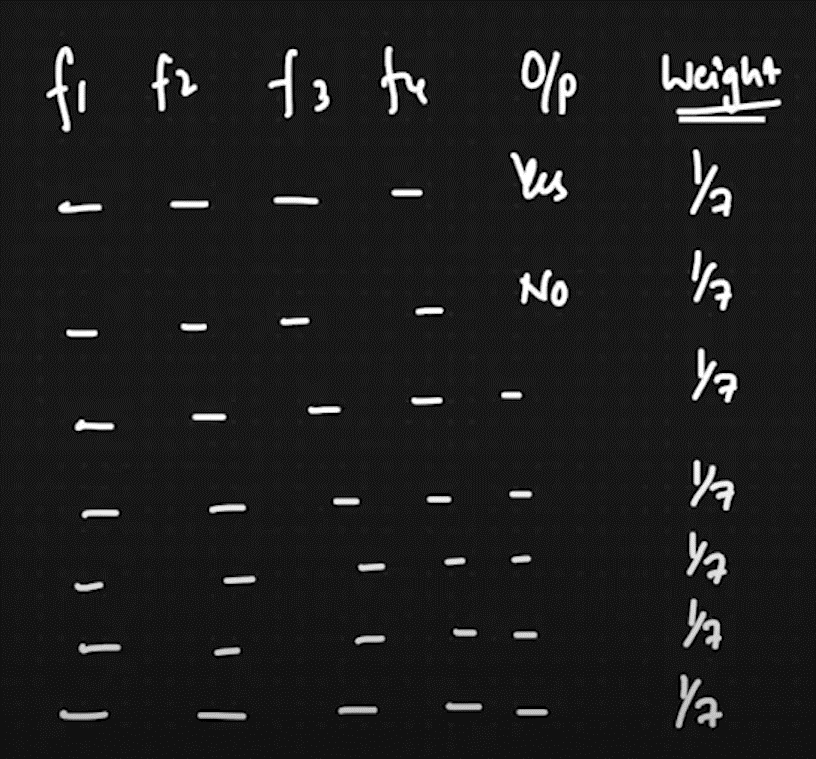 f1 f2 f3 f4 O/p Weight
— — — — Yes 1/7
— — — — No 1/7
— — — — — 1/7
— — — — — 1/7
— — — — — 1/7
— — — — — 1/7
— — — — — 1/7